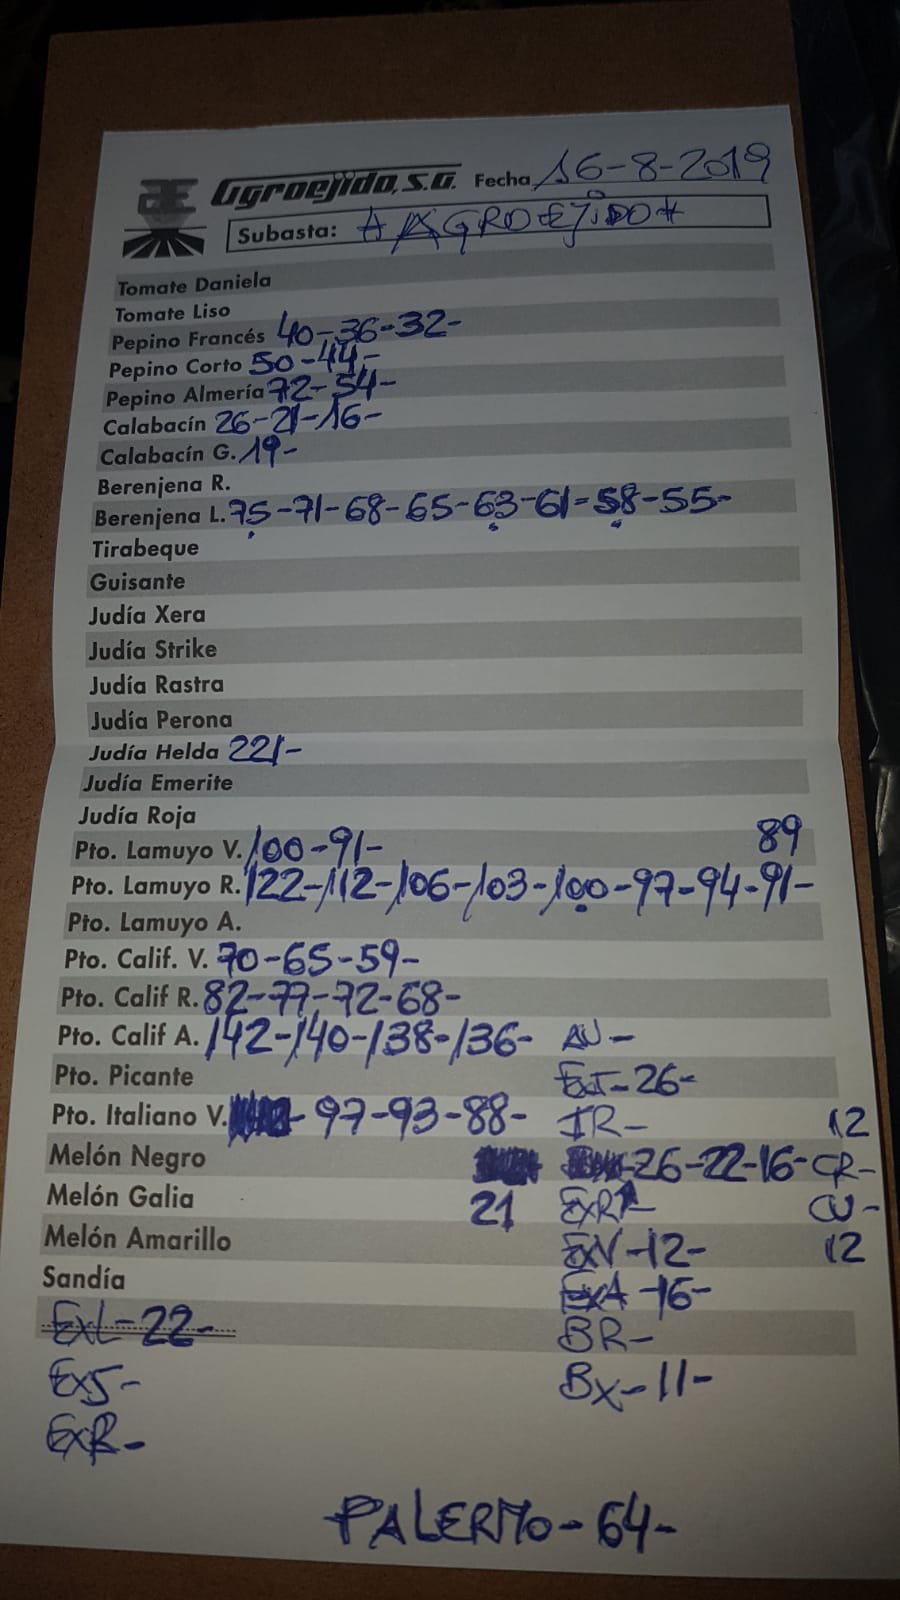 Agroejido, S.A. Fecha 16-8-2019
Subasta: * AGROEJIDO *
Tomate Daniela
Tomate Liso
Pepino Francés 40-36-32-
Pepino Corto 50-44-
Pepino Almería 72-54-
Calabacín 26-21-16-
Calabacín G. 19-
Berenjena R.
Berenjena L. 75-71-68-65-63-61-58-55-
Tirabeque
Guisante
Judía Xera
Judía Strike
Judía Rastra
Judía Perona
Judía Helda 221-
Judía Emerite
Judía Roja
Pto. Lamuyo V. 100-91- 89
Pto. Lamuyo R. 122-112-106-103-100-97-94-91-
Pto. Lamuyo A.
Pto. Calif. V. 70-65-59-
Pto. Calif R. 82-77-72-68-
Pto. Calif A. 142-140-138-136- AV-
Pto. Picante ExI-26-
Pto. Italiano V. - 97-93-88- IR- 12
Melón Negro -26-22-16- CR-
Melón Galia 21 EXR- CV-
Melón Amarillo EXV-12- 12
Sandía EXA-16-
EXL-22- BR-
EX5- BX-11-
EXR-
PALERMO-64-